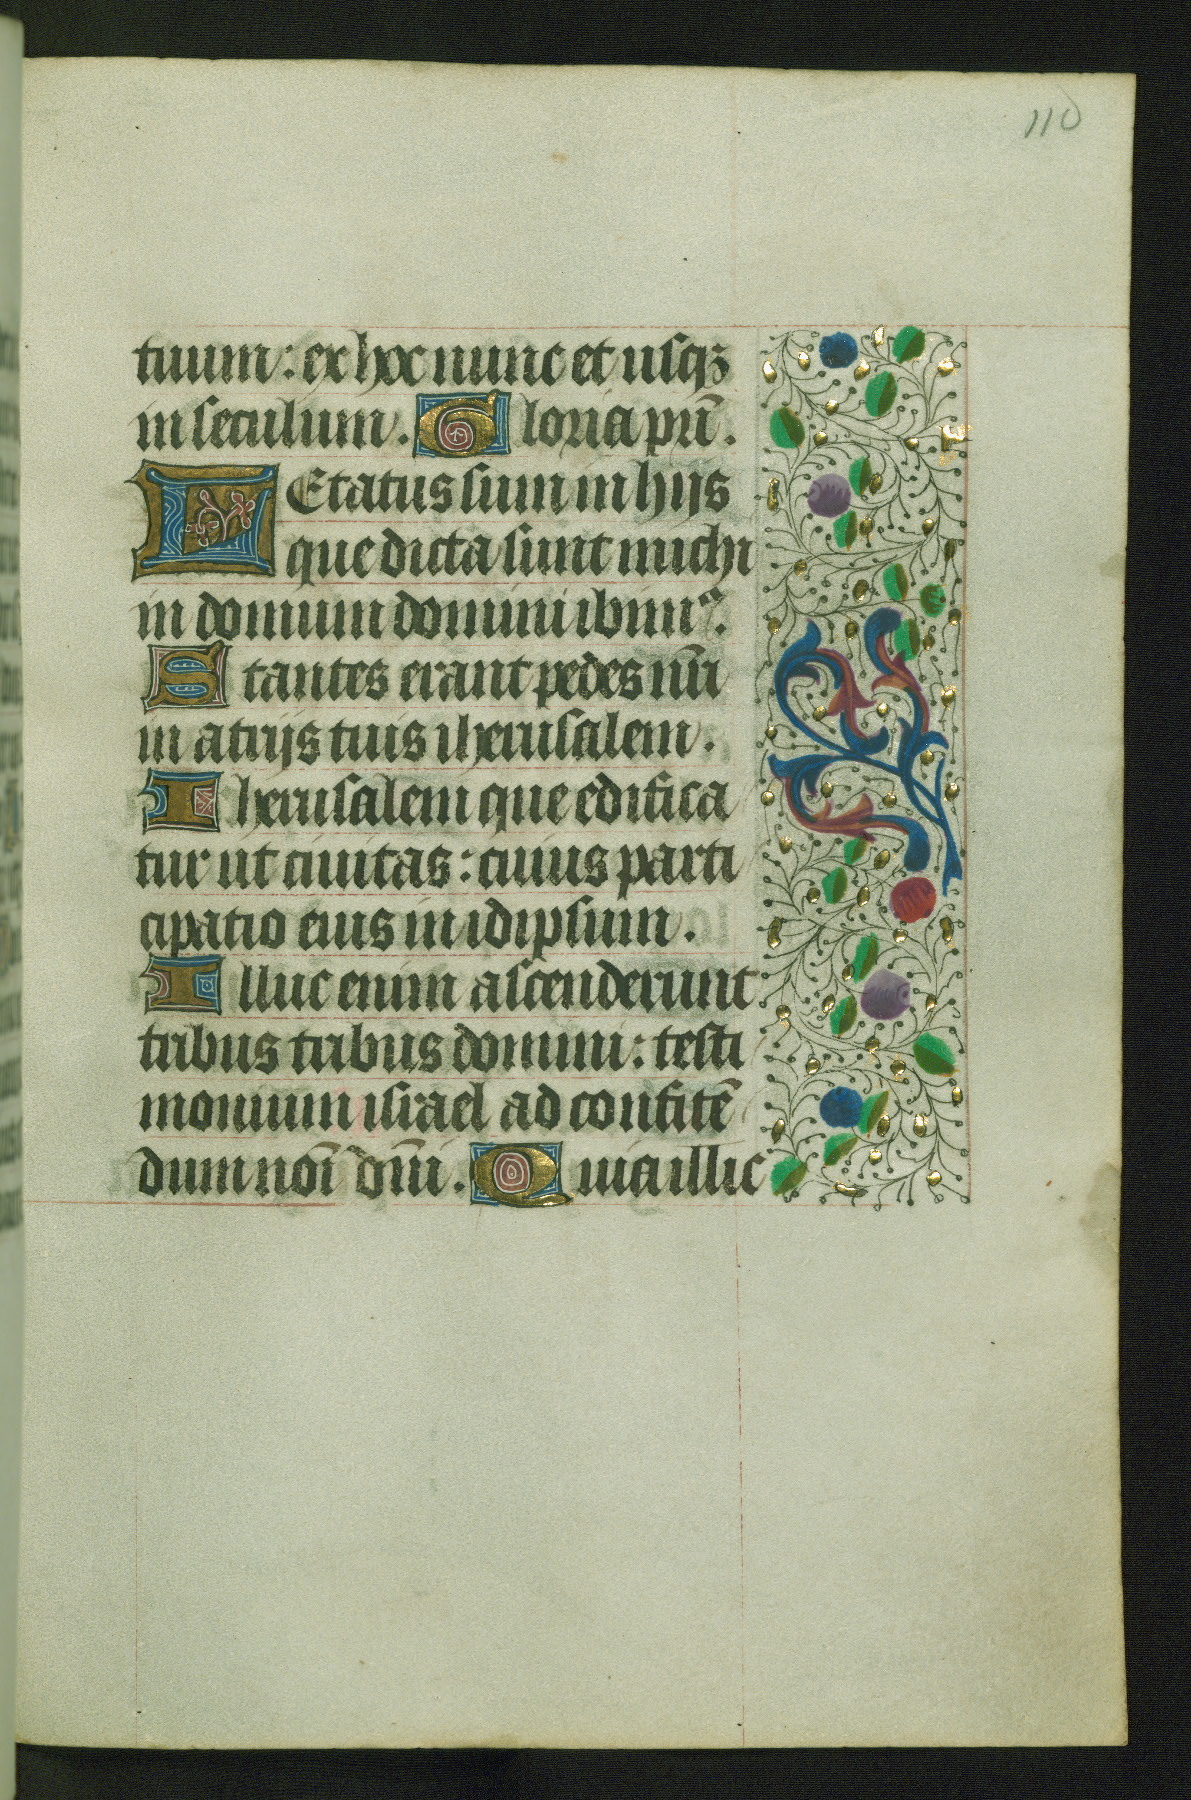 110
tuum: ex hoc nunc et usqꝫ
in seculum. Gloria pr̄i.
LEtatus sum in hijs
que dicta sunt michi
in domum domini ibimꝰ.
Stantes erant pedes nr̄i
in atrijs tuis iherusalem.
Iherusalem que edifica
tur ut ciuitas: cuius parti
cipatio eius in idipsum.
Illuc enim ascenderunt
tribus tribus domini: testi
monium israel ad confitē
dum nōi dn̄i. Quia illic